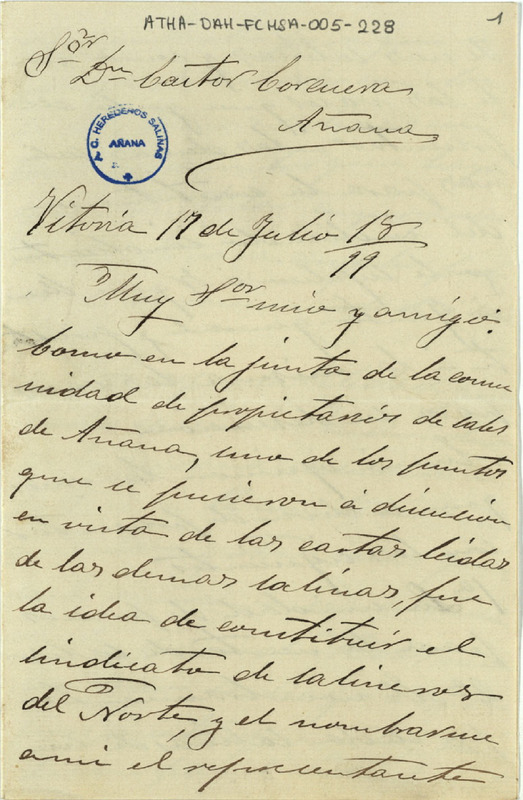 ATHA-DAH-FCHSA-005-228
1
Sor
Dn Castor Corcuera
Añana
A. C. HEREDEROS SALINAS
AÑANA
Vitoria 17 de Julio 18/99
Muy Sor mio y amigo:
Como en la junta de la comu
nidad de propietarios de sales
de Añana, uno de los puntos
que se pusieron á discusion
en vista de las cartas leidas
de las demas salinas, fue
la idea de constituir el
Sindicato de salineros
del Norte, y el nombrarme
a mi el representante